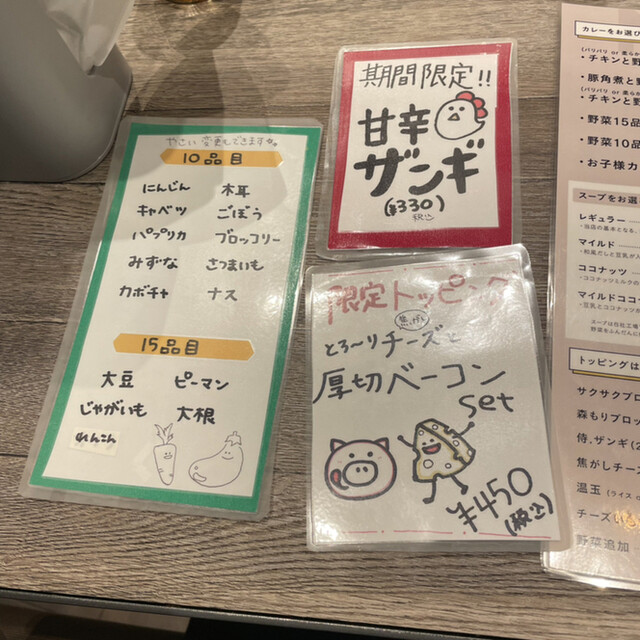 やさい変更もできます
10品目
にんじん 木耳
キャベツ ごぼう
パプリカ ブロッコリー
みずな さつまいも
カボチャ ナス
15品目
大豆 ピーマン
じゃがいも 大根
れんこん
期間限定!!
甘辛
ザンギ
(¥330)
税込
限定トッピング
焦がし
とろ〜りチーズと
厚切ベーコン
set
¥450
(税込)
カレーをお選び
(パリパリ or 柔らか
・チキンと野
・豚角煮と野
(パリパリ or 柔らか
・チキンと
・野菜15品
・野菜10品
・お子様カ
スープをお選
レギュラー
マイルド
ココナッツ
マイルドココ
トッピングは
サクサクブロ
森もりブロッ
侍.ザンギ(2
焦がしチーズ
温玉 (ライス o
チーズ
野菜追加